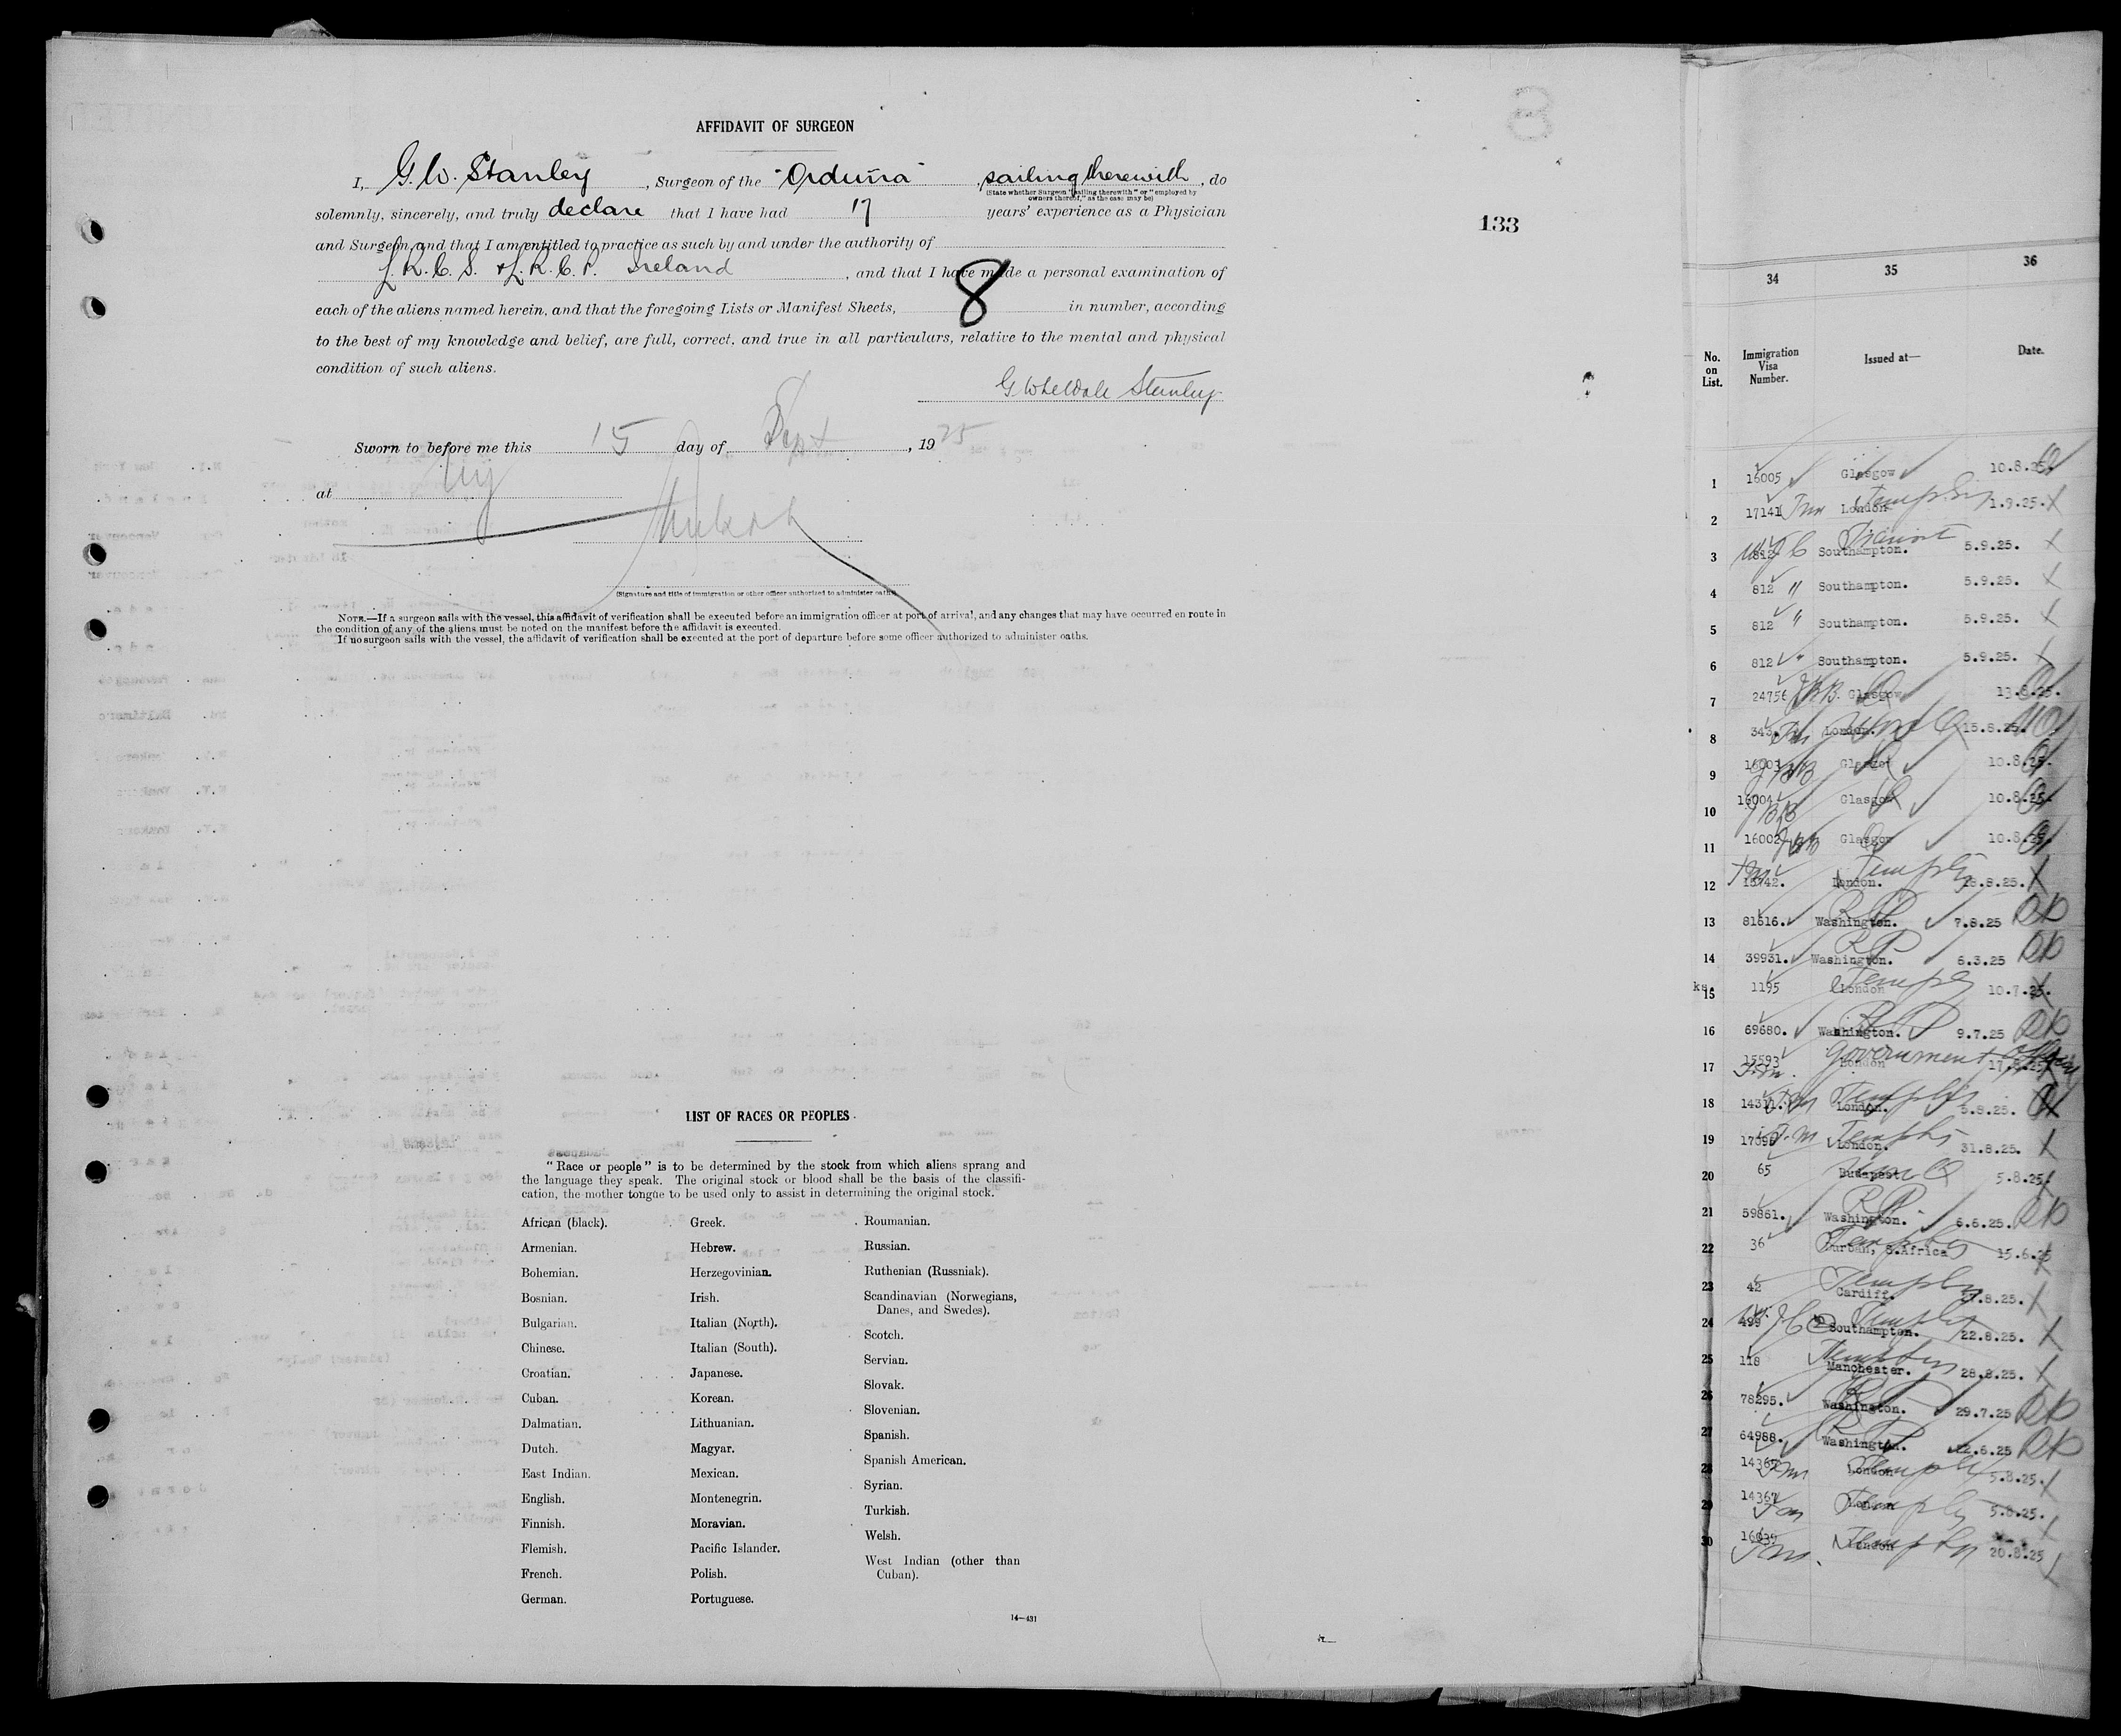 AFFIDAVIT OF SURGEON
I, G. W. Stanley, Surgeon of the "Orduña" sailing therewith, do
(State whether Surgeon "sailing therewith" or "employed by
owners thereof," as the case may be)
solemnly, sincerely, and truly declare that I have had 17 years' experience as a Physician
and Surgeon, and that I am entitled to practice as such by and under the authority of
L.R.C.S. & L.R.C.P. Ireland, and that I have made a personal examination of
each of the aliens named herein, and that the foregoing Lists or Manifest Sheets, 8 in number, according
to the best of my knowledge and belief, are full, correct, and true in all particulars, relative to the mental and physical
condition of such aliens.
G Wheldale Stanley
Sworn to before me this 15 day of Sept, 1925
at NY
(Signature and title of immigration or other officer authorized to administer oaths)
NOTE.—If a surgeon sails with the vessel, this affidavit of verification shall be executed before an immigration officer at port of arrival, and any changes that may have occurred en route in
the condition of any of the aliens must be noted on the manifest before the affidavit is executed.
If no surgeon sails with the vessel, the affidavit of verification shall be executed at the port of departure before some officer authorized to administer oaths.
133
LIST OF RACES OR PEOPLES
"Race or people" is to be determined by the stock from which aliens sprang and
the language they speak. The original stock or blood shall be the basis of the classifi-
cation, the mother tongue to be used only to assist in determining the original stock.
African (black).
Armenian.
Bohemian.
Bosnian.
Bulgarian.
Chinese.
Croatian.
Cuban.
Dalmatian.
Dutch.
East Indian.
English.
Finnish.
Flemish.
French.
German.
Greek.
Hebrew.
Herzegovinian.
Irish.
Italian (North).
Italian (South).
Japanese.
Korean.
Lithuanian.
Magyar.
Mexican.
Montenegrin.
Moravian.
Pacific Islander.
Polish.
Portuguese.
Roumanian.
Russian.
Ruthenian (Russniak).
Scandinavian (Norwegians,
Danes, and Swedes).
Scotch.
Servian.
Slovak.
Slovenian.
Spanish.
Spanish American.
Syrian.
Turkish.
Welsh.
West Indian (other than
Cuban).
14—431
34 35 36
No. on List. Immigration Visa Number. Issued at— Date.
1 16005 Glasgow 10.8.25.
2 17141 London 1.9.25.
3 812 Southampton. 5.9.25. Transit
4 812 " Southampton. 5.9.25.
5 812 " Southampton. 5.9.25.
6 812 " Southampton. 5.9.25.
7 24756 Glasgow 13.8.25.
8 343 London. 15.8.25.
9 16003 Glasgow 10.8.25.
10 16004 Glasgow 10.8.25.
11 16002 Glasgow 10.8.25.
12 London. 8.25.
13 81616. Washington. RP 7.8.25
14 39931. Washington. RP 6.3.25
15 1195 London 10.7.25.
16 69680. Washington. RP 9.7.25
17 15593 London Government official
18 London. 5.8.25.
19 London. 31.8.25.
20 65 Budapest 5.8.25.
21 59861. Washington. RP 6.6.25.
22 36 Durban, S.Africa 15.6.25
23 42 Cardiff. 8.25.
24 499 Southampton. 22.8.25.
25 118 Manchester. 28.8.25.
26 78295. Washington. RP 29.7.25
27 64988. Washington. RP 22.6.25
28 London 5.8.25.
29 14367 London 5.8.25.
30 London 20.8.25